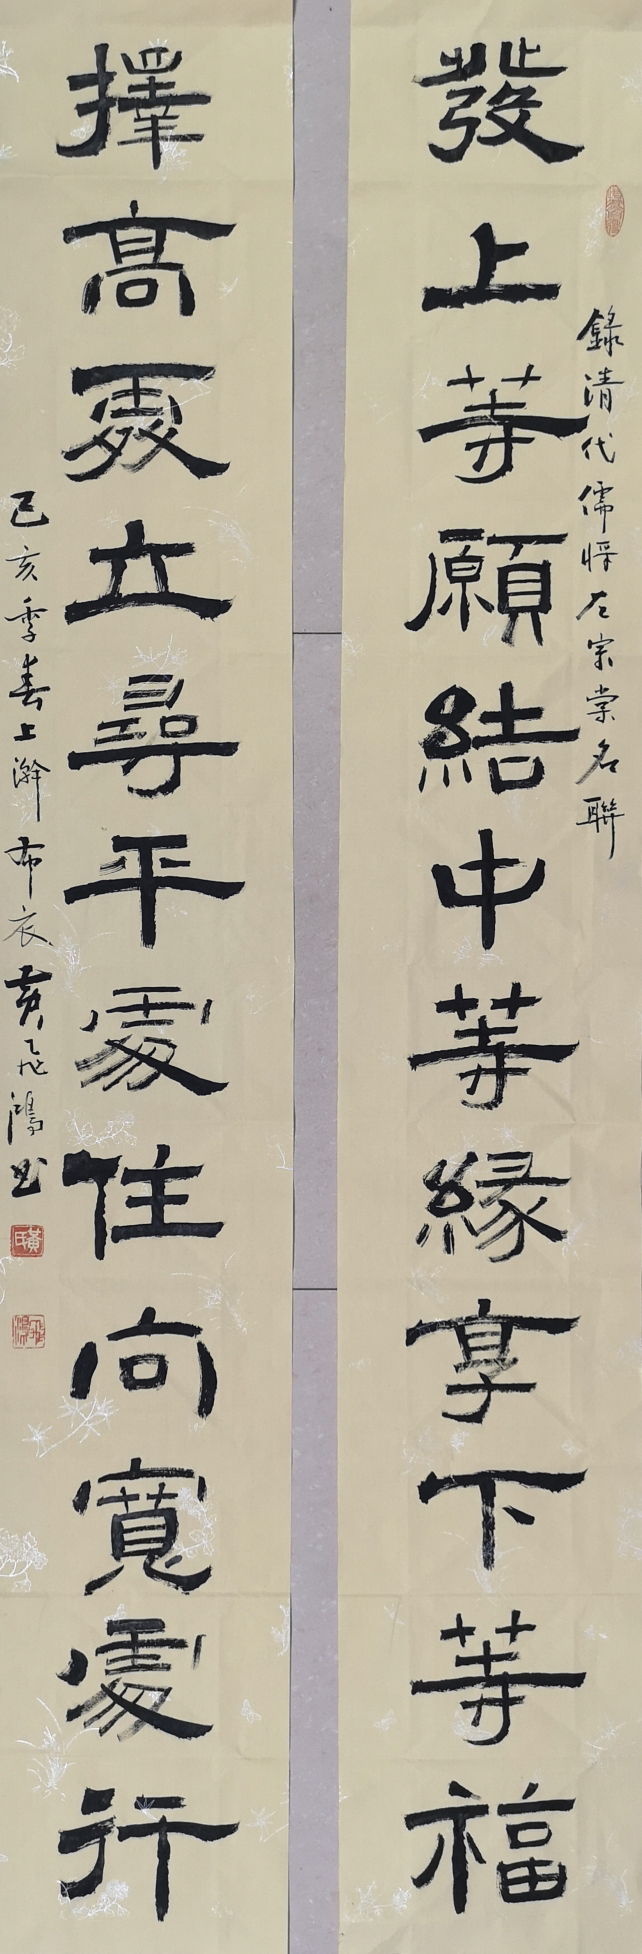 發上等願結中等緣享下等福
錄清代儒將左宗棠名聯
擇高處立尋平處住向寬處行
己亥季春上澣布衣黃飛鴻書
黃氏
飛鴻